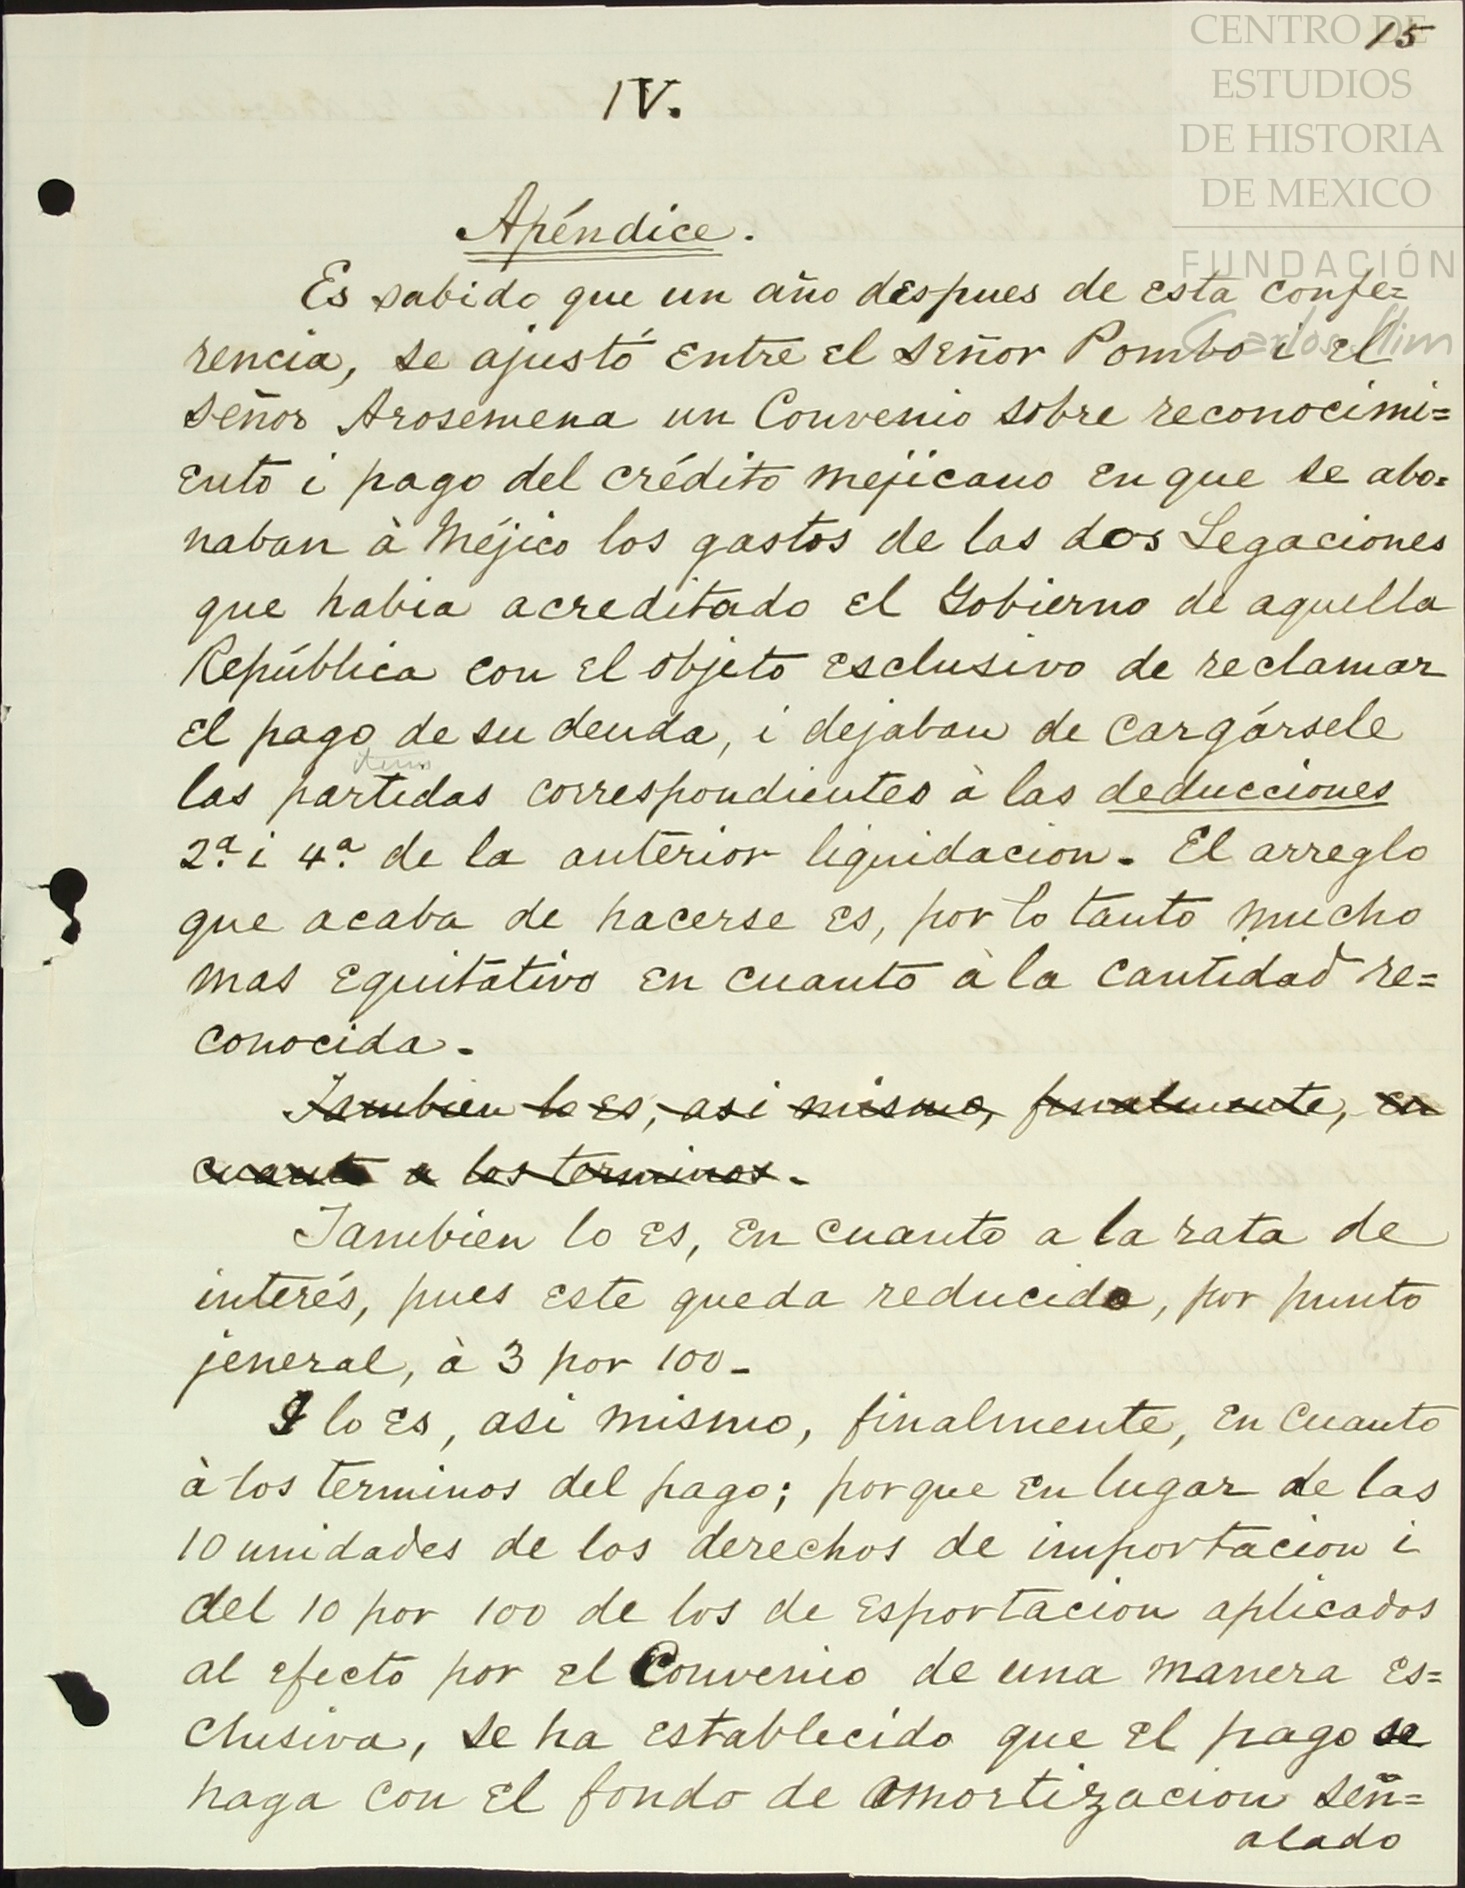 15
CENTRO DE
ESTUDIOS
DE HISTORIA
DE MEXICO
FUNDACIÓN
Carlos Slim
IV.
Apéndice.
Es sabido que un año despues de esta confe=
rencia, se ajustó entre el Señor Pombo i el
Señor Arosemena un Convenio sobre reconocimi=
ento i pago del crédito mejicano en que se abo=
naban à Méjico los gastos de las dos Legaciones
que habia acreditado el Gobierno de aquella
República con el objeto esclusivo de reclamar
el pago de su deuda, i dejaban de cargársele
las partidas correspondientes à las deducciones
2ª i 4ª de la anterior liquidacion. El arreglo
que acaba de hacerse es, por lo tanto mucho
mas equitativo en cuanto à la cantidad re=
conocida.
Tambien lo es, asi mismo, finalmente, en
cuanto a los terminos.
Tambien lo es, en cuanto a la rata de
interés, pues este queda reducido, por punto
jeneral, à 3 por 100.
I lo es, asi mismo, finalmente, en cuanto
à los terminos del pago; porque en lugar de las
10 unidades de los derechos de importacion i
del 10 por 100 de los de esportacion aplicados
al efecto por el Convenio de una manera es=
clusiva, se ha establecido que el pago se
haga con el fondo de amortizacion señ=
alado